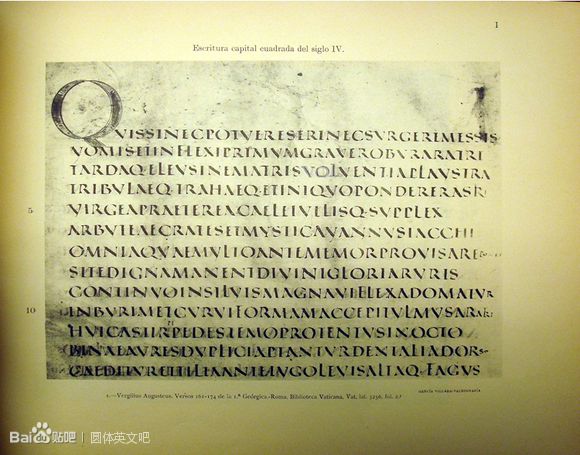 I
Escritura capital cuadrada del siglo IV.
QVISSINECPOTVERESERINECSVRGEREMESSIS
VOMISETINFLEXIPRIMVMGRAVEROBVRARATRI
TARDAQ·ELEVSINEMATRISVOLVENTIAPLAVSTRA
TRIBVLAEQ·TRAHAEQ·ETINIQVOPONDERERASRI
5 VIRGEAPRAETEREACAELEIVILISQ·SVPPLEX
ARBVTEAECRATESETMYSTICAVANNVSIACCHI
OMNIAQVAEMVLTOANTEMEMORPROVISARE
SITEDIGNAMANENTDIVINIGLORIARVRIS
CONTINVOINSILVISMAGNAVIFLEXADOMATVR
10 INBVRIMETCVRVIFORMAMACCIPITVLMVSARATRI
HVICASTIRPEPEDESTEMOPROTENTVSINOCTO
BINAEAVRESDVPLICIAPTANTVRDENTALIADORSO
CAEDITVRETTILIAANTEIVGOLEVISALTAQ·FAGVS
GARCÍA VILLADA: PALEOGRAFÍA
1.—Vergilius Augusteus. Versos 161-174 de la 1.ª Geórgica.-Roma. Biblioteca Vaticana. Vat. lat. 3256, fol. 2.
Bai du 贴吧 | 圆体英文吧